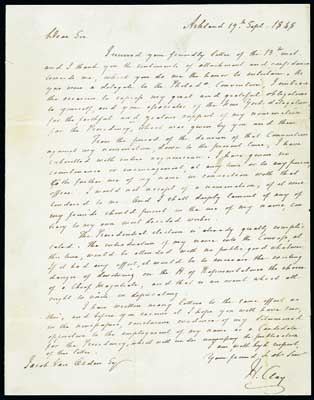 Ashland 19th Sept. 1848
Dear Sir
I received your friendly letter of the 13th inst.
and I thank you for the sentiments of attachment and confidence
towards me, which you do me the honor to entertain. As
you were a delegate to the Philada Convention, I embrace
the occasion to express my great and grateful obligations
to yourself, and your associates of the New York delegation
for the faithful and zealous support of my nomination
for the Presidency, which was given by you and them.
From the period of the decision of that Convention
against my nomination, down to the present time, I have
submitted with entire acquiescence. I have given no
countenance or encouragement at any time or to any person
to the further use of my name in connection with that
office. I would not accept of a nomination, if it were
tendered to me. And I shall deeply lament if any of
my friends should persist in the use of my name con-
trary to my own most decided wishes.
The Presidential election is already greatly compli-
cated. The introduction of my name into the Canvass at
this time, would be attended with no public good whatever.
If it had any effect, it would be to increase the existing
danger of devolving on the H. of Representatives the choice
of a Chief Magistrate, and that is an event which all
ought to unite in deprecating.
I have written many letters to the same effect as
this, and before you receive it I hope you will have seen,
in the newspapers, conclusive evidence of my determined
opposition to the employment of my name as a Candidate
for the Presidency, which will render unnecessary the publication
of this letter.
I am with high respect,
Your friend & obt. Serv
H. Clay
Jacob Van Esq